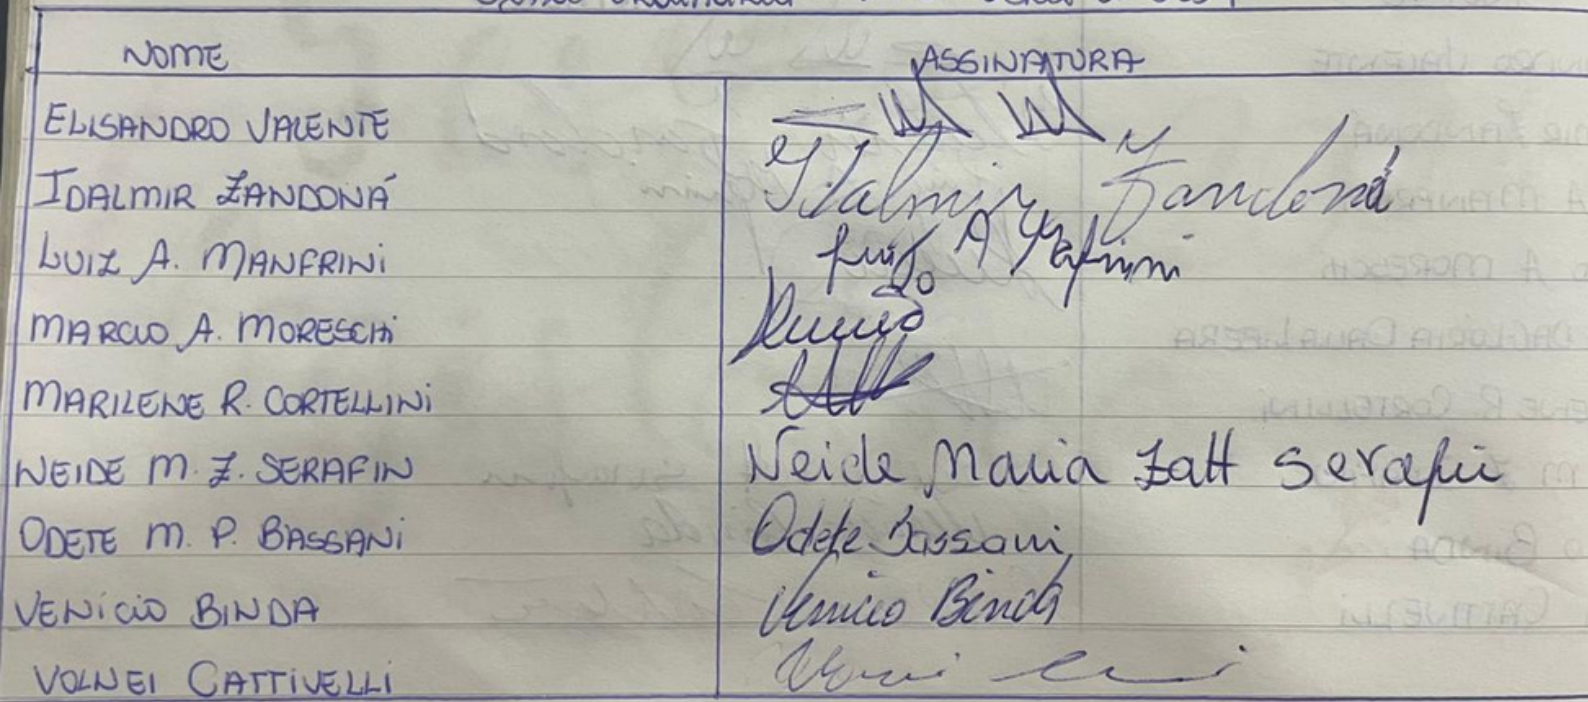 NOME ASSINATURA
ELISANDRO VALENTE
IDALMIR ZANDONÁ Idalmir Zandoná
LUIZ A. MANFRINI Luiz A Manfrini
MARCIO A. MORESCHI
MARILENE R. CORTELLINI
NEIDE M. Z. SERAFIN Neide Maria Zatt Serafin
ODETE M. P. BASSANI Odete Bassani
VENÍCIO BINDA Venicio Binda
VOLNEI CATTIVELLI